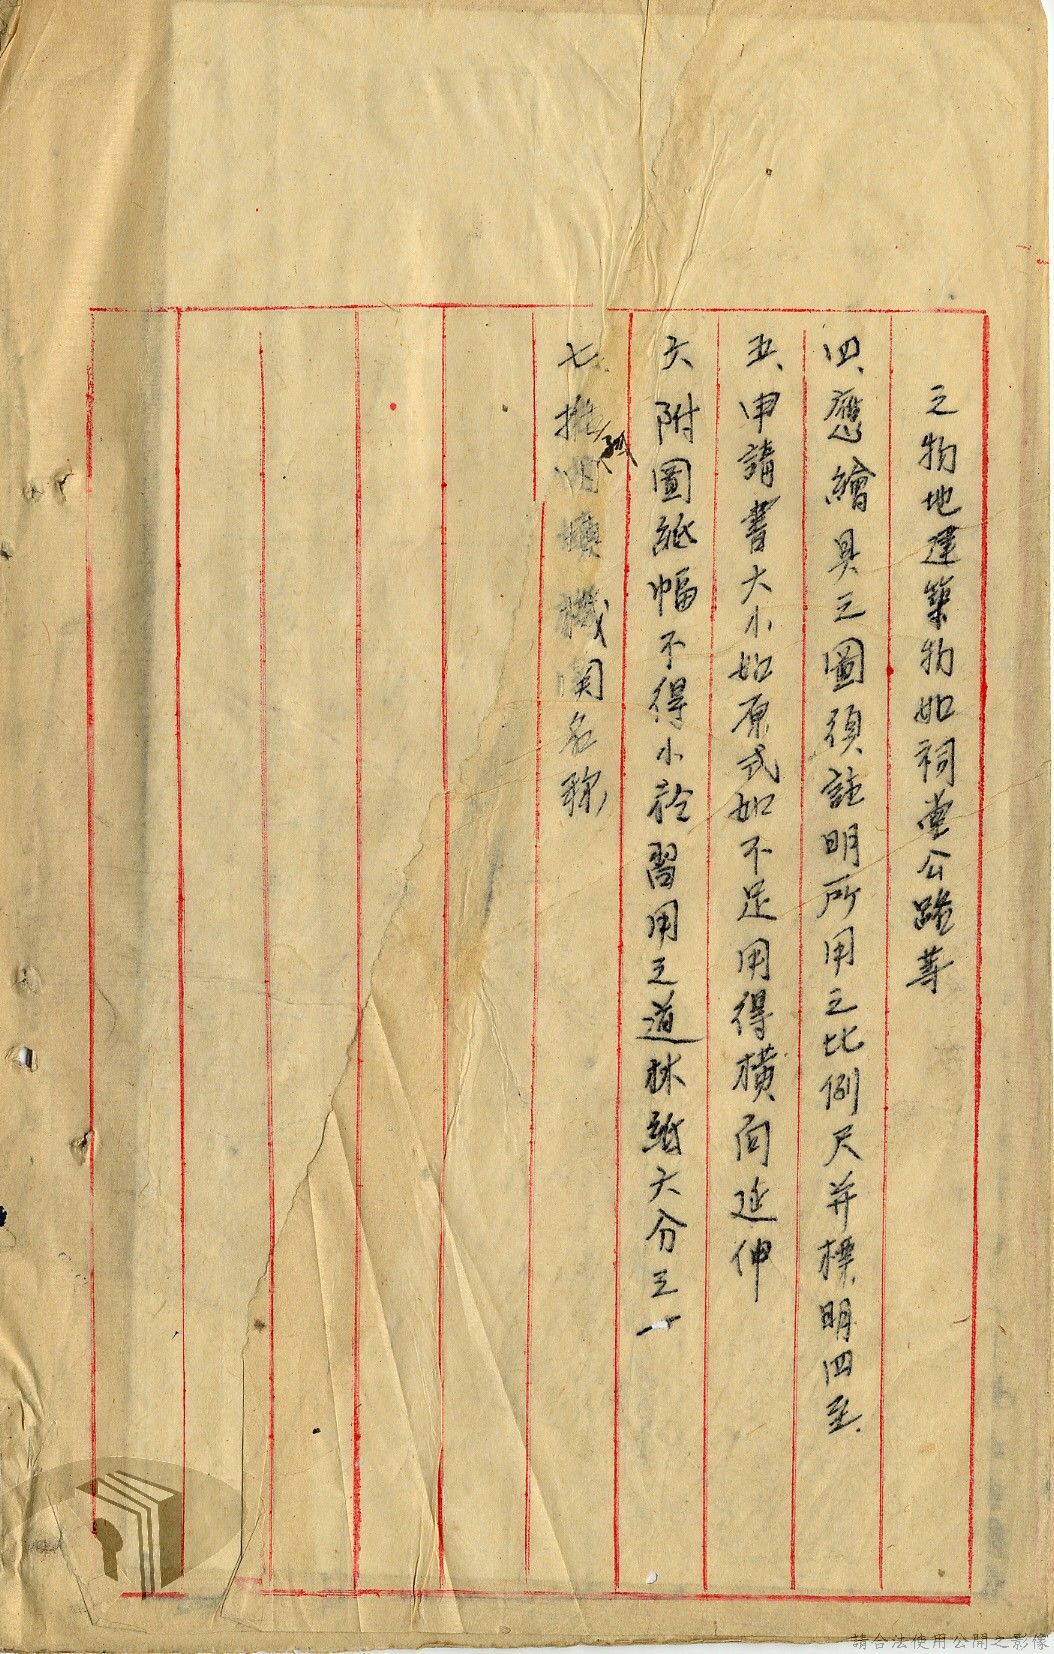 之物地建築物如祠堂公路等
四、應繪具之圖須註明所用之比例尺并標明四至
五、申請書大小如原式如不足用得橫向延伸
六附圖紙幅不得小於習用之道林紙六分之一
七、機関名称
請合法使用公開之影像